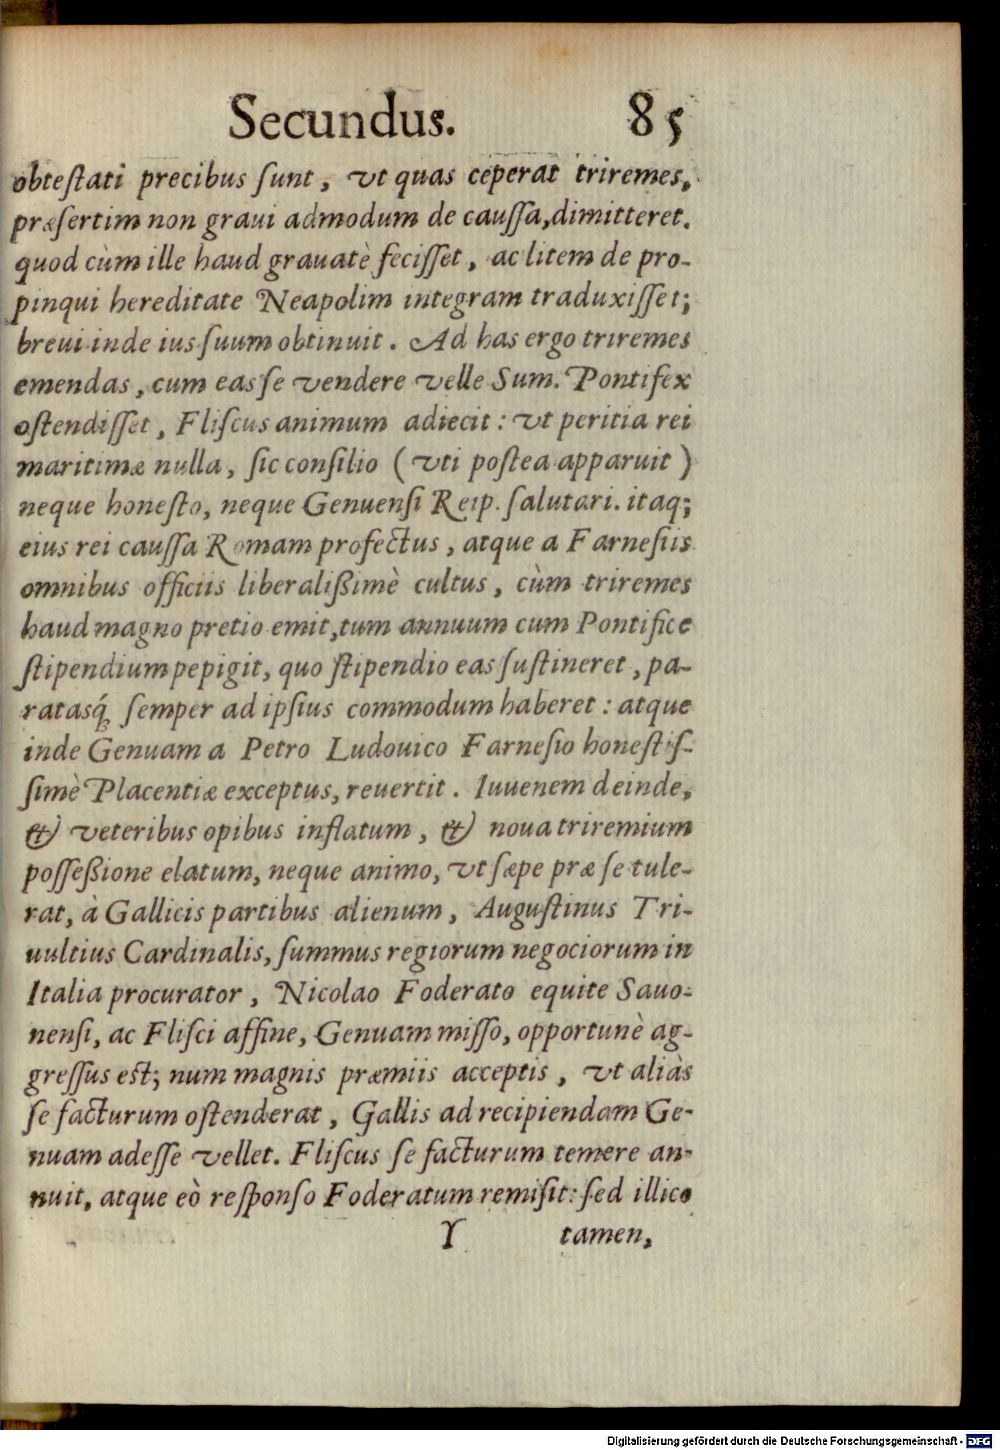 Secundus. 85
obteſtati precibus ſunt, vt quas ceperat triremes,
præſertim non graui admodum de cauſſa, dimitteret.
quod cùm ille haud grauatè feciſſet, ac litem de pro-
pinqui hereditate Neapolim integram traduxiſſet;
breui inde ius ſuum obtinuit. Ad has ergo triremes
emendas, cum eas ſe vendere velle Sum. Pontifex
oſtendiſſet, Fliſcus animum adiecit: vt peritia rei
maritimæ nulla, ſic conſilio (vti poſtea apparuit)
neque honeſto, neque Genuenſi Reip. ſalutari. itaq;
eius rei cauſſa Romam profectus, atque a Farneſiis
omnibus officiis liberalißimè cultus, cùm triremes
haud magno pretio emit, tum annuum cum Pontifice
ſtipendium pepigit, quo ſtipendio eas ſuſtineret, pa-
ratasq́ ſemper ad ipſius commodum haberet: atque
inde Genuam a Petro Ludouico Farneſio honeſtiſ-
ſimè Placentiæ exceptus, reuertit. Iuuenem deinde,
& veteribus opibus inflatum, & noua triremium
poſſeßione elatum, neque animo, vt ſæpe præ ſe tule-
rat, à Gallicis partibus alienum, Auguſtinus Tri-
uultius Cardinalis, ſummus regiorum negociorum in
Italia procurator, Nicolao Foderato equite Sauo-
nenſi, ac Fliſci affine, Genuam miſſo, opportunè ag-
greſſus eſt; num magnis præmiis acceptis, vt aliàs
ſe facturum oſtenderat, Gallis ad recipiendam Ge-
nuam adeſſe vellet. Fliſcus ſe facturum temere an-
nuit, atque eò reſponſo Foderatum remiſit: ſed illico
Y tamen,
Digitalisierung gefördert durch die Deutsche Forschungsgemeinschaft - DFG